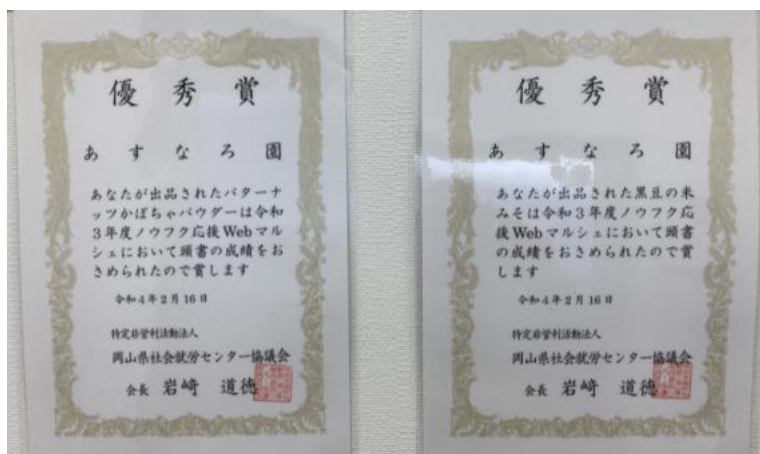 優秀賞
あすなろ園
あなたが出品されたバターナ
ッツかぼちゃパウダーは令和
3年度ノウフク応援Webマル
シェにおいて頭書の成績をお
さめられたので賞します
令和4年2月16日
特定非営利活動法人
岡山県社会就労センター協議会
会長 岩崎 道徳
優秀賞
あすなろ園
あなたが出品された黒豆の米
みそは令和3年度ノウフク応
援Webマルシェにおいて頭書
の成績をおさめられたので賞
します
令和4年2月16日
特定非営利活動法人
岡山県社会就労センター協議会
会長 岩崎 道徳